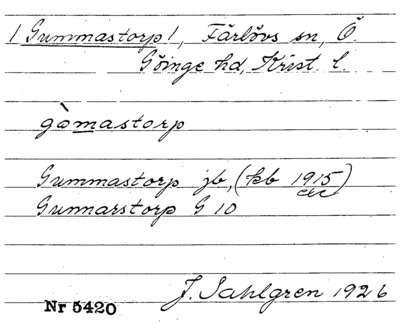 | Gummastorp |, Färlövs sn, Ö
Göinge hd, Krist. l.
gòmastorp
Gummastorp jb, (kb 1915)
etc
Gunnarstorp G 10
J. Sahlgren 1926
Nr 5420